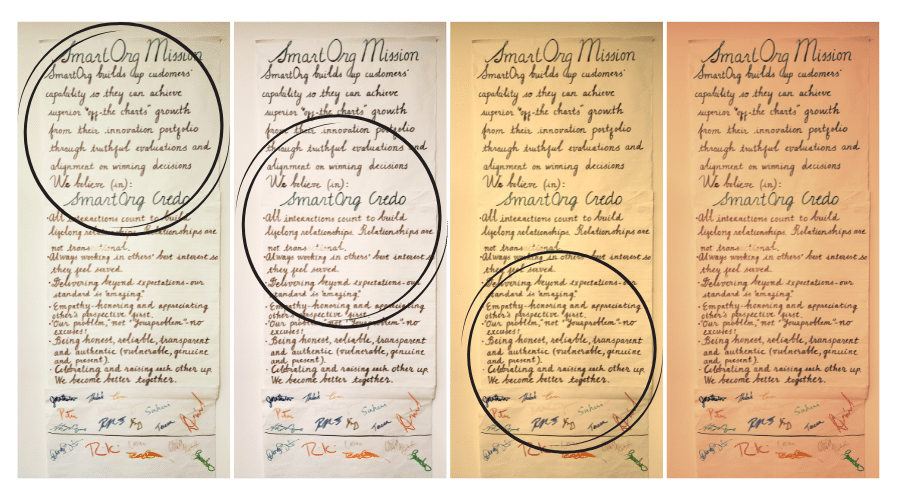 SmartOrg Mission
SmartOrg builds up customers'
capability so they can achieve
superior "off-the charts" growth
from their innovation portfolio
through truthful evaluations and
alignment on winning decisions
We believe (in):
SmartOrg Credo
·All interactions count to build
lifelong relationships. Relationships are
not transactional.
·Always working in others' best interest so
they feel saved.
·Delivering beyond expectations-our
standard is "amazing"
·Empathy-honoring and appreciating
other's perspective first.
·"Our problem," not "Your problem"-no
excuses!
·Being honest, reliable, transparent
and authentic (vulnerable, genuine
and, present).
·Celebrating and raising each other up.
We become better together.
SmartOrg Mission
SmartOrg builds up customers'
capability so they can achieve
superior "off-the charts" growth
from their innovation portfolio
through truthful evaluations and
alignment on winning decisions
We believe (in):
SmartOrg Credo
·All interactions count to build
lifelong relationships. Relationships are
not transactional.
·Always working in others' best interest so
they feel saved.
·Delivering beyond expectations-our
standard is "amazing"
·Empathy-honoring and appreciating
other's perspective first.
·"Our problem," not "Your problem"-no
excuses!
·Being honest, reliable, transparent
and authentic (vulnerable, genuine
and, present).
·Celebrating and raising each other up.
We become better together.
SmartOrg Mission
SmartOrg builds up customers'
capability so they can achieve
superior "off-the charts" growth
from their innovation portfolio
through truthful evaluations and
alignment on winning decisions
We believe (in):
SmartOrg Credo
·All interactions count to build
lifelong relationships. Relationships are
not transactional.
·Always working in others' best interest so
they feel saved.
·Delivering beyond expectations-our
standard is "amazing"
·Empathy-honoring and appreciating
other's perspective first.
·"Our problem," not "Your problem"-no
excuses!
·Being honest, reliable, transparent
and authentic (vulnerable, genuine
and, present).
·Celebrating and raising each other up.
We become better together.
SmartOrg Mission
SmartOrg builds up customers'
capability so they can achieve
superior "off-the charts" growth
from their innovation portfolio
through truthful evaluations and
alignment on winning decisions
We believe (in):
SmartOrg Credo
·All interactions count to build
lifelong relationships. Relationships are
not transactional.
·Always working in others' best interest so
they feel saved.
·Delivering beyond expectations-our
standard is "amazing"
·Empathy-honoring and appreciating
other's perspective first.
·"Our problem," not "Your problem"-no
excuses!
·Being honest, reliable, transparent
and authentic (vulnerable, genuine
and, present).
·Celebrating and raising each other up.
We become better together.